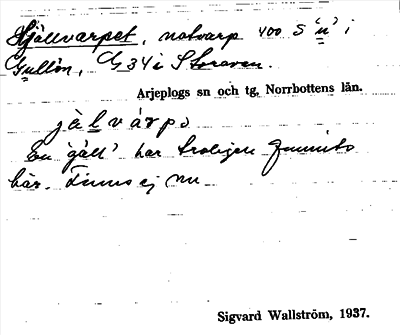 Hjällvarpet, notvarp 400 S 'n' i
Gullön, G 34 i Storavan.
Arjeplogs sn och tg, Norrbottens län.
jälvárpə
En 'gäll' har troligen funnits
här. Finns ej nu
Sigvard Wallström, 1937.